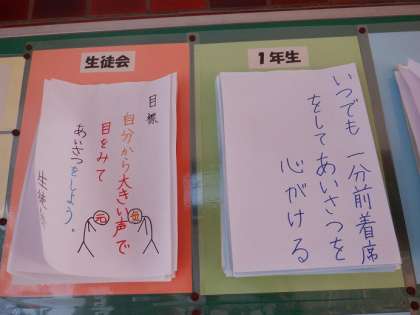 生徒会
目標
自分から大きい声で
目をみて
あいさつをしよう。
元 気
1年生
いつでも 一分前着席
をしてあいさつを
心がける